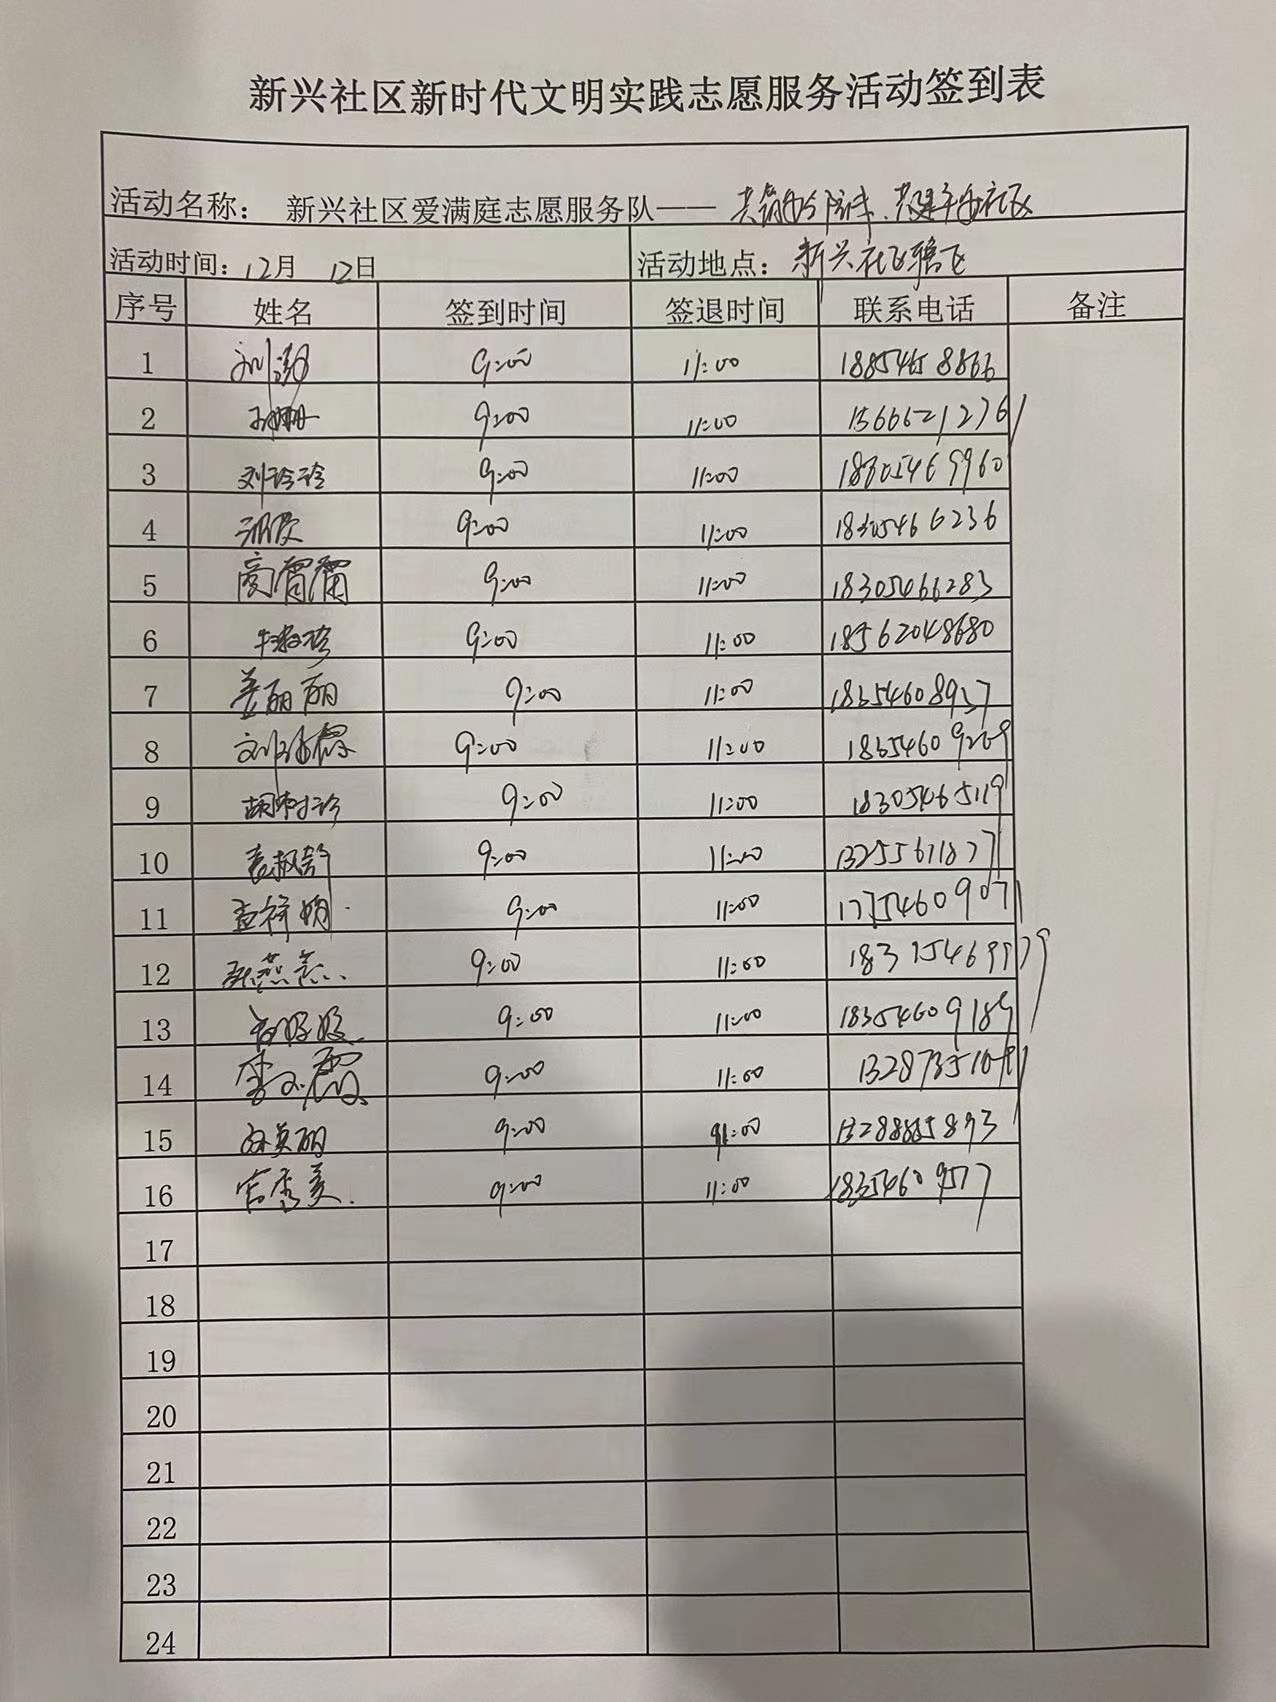 新兴社区新时代文明实践志愿服务活动签到表
活动名称： 新兴社区爱满庭志愿服务队—— 共建平安社区
活动时间：12月 12日 活动地点：新兴社区辖区
序号 姓名 签到时间 签退时间 联系电话 备注
1 9:00 11:00 18854658866
2 9:00 11:00 15666212761
3 刘玲玲 9:00 11:00 18305469960
4 9:00 11:00 18305466236
5 高霄霄 9:00 11:00 18305466283
6 9:00 11:00 18562048680
7 姜丽丽 9:00 11:00 18354608937
8 9:00 11:00 18354609269
9 9:00 11:00 18305465119
10 袁淑舒 9:00 11:00 13255611877
11 孟祥娟 9:00 11:00 17754609071
12 9:00 11:00
13 9:00 11:00 18354609189
14 李玉霞 9:00 11:00
15 孙美丽 9:00 11:00 13288885893
16 宫秀美 9:00 11:00 18354609577
17
18
19
20
21
22
23
24